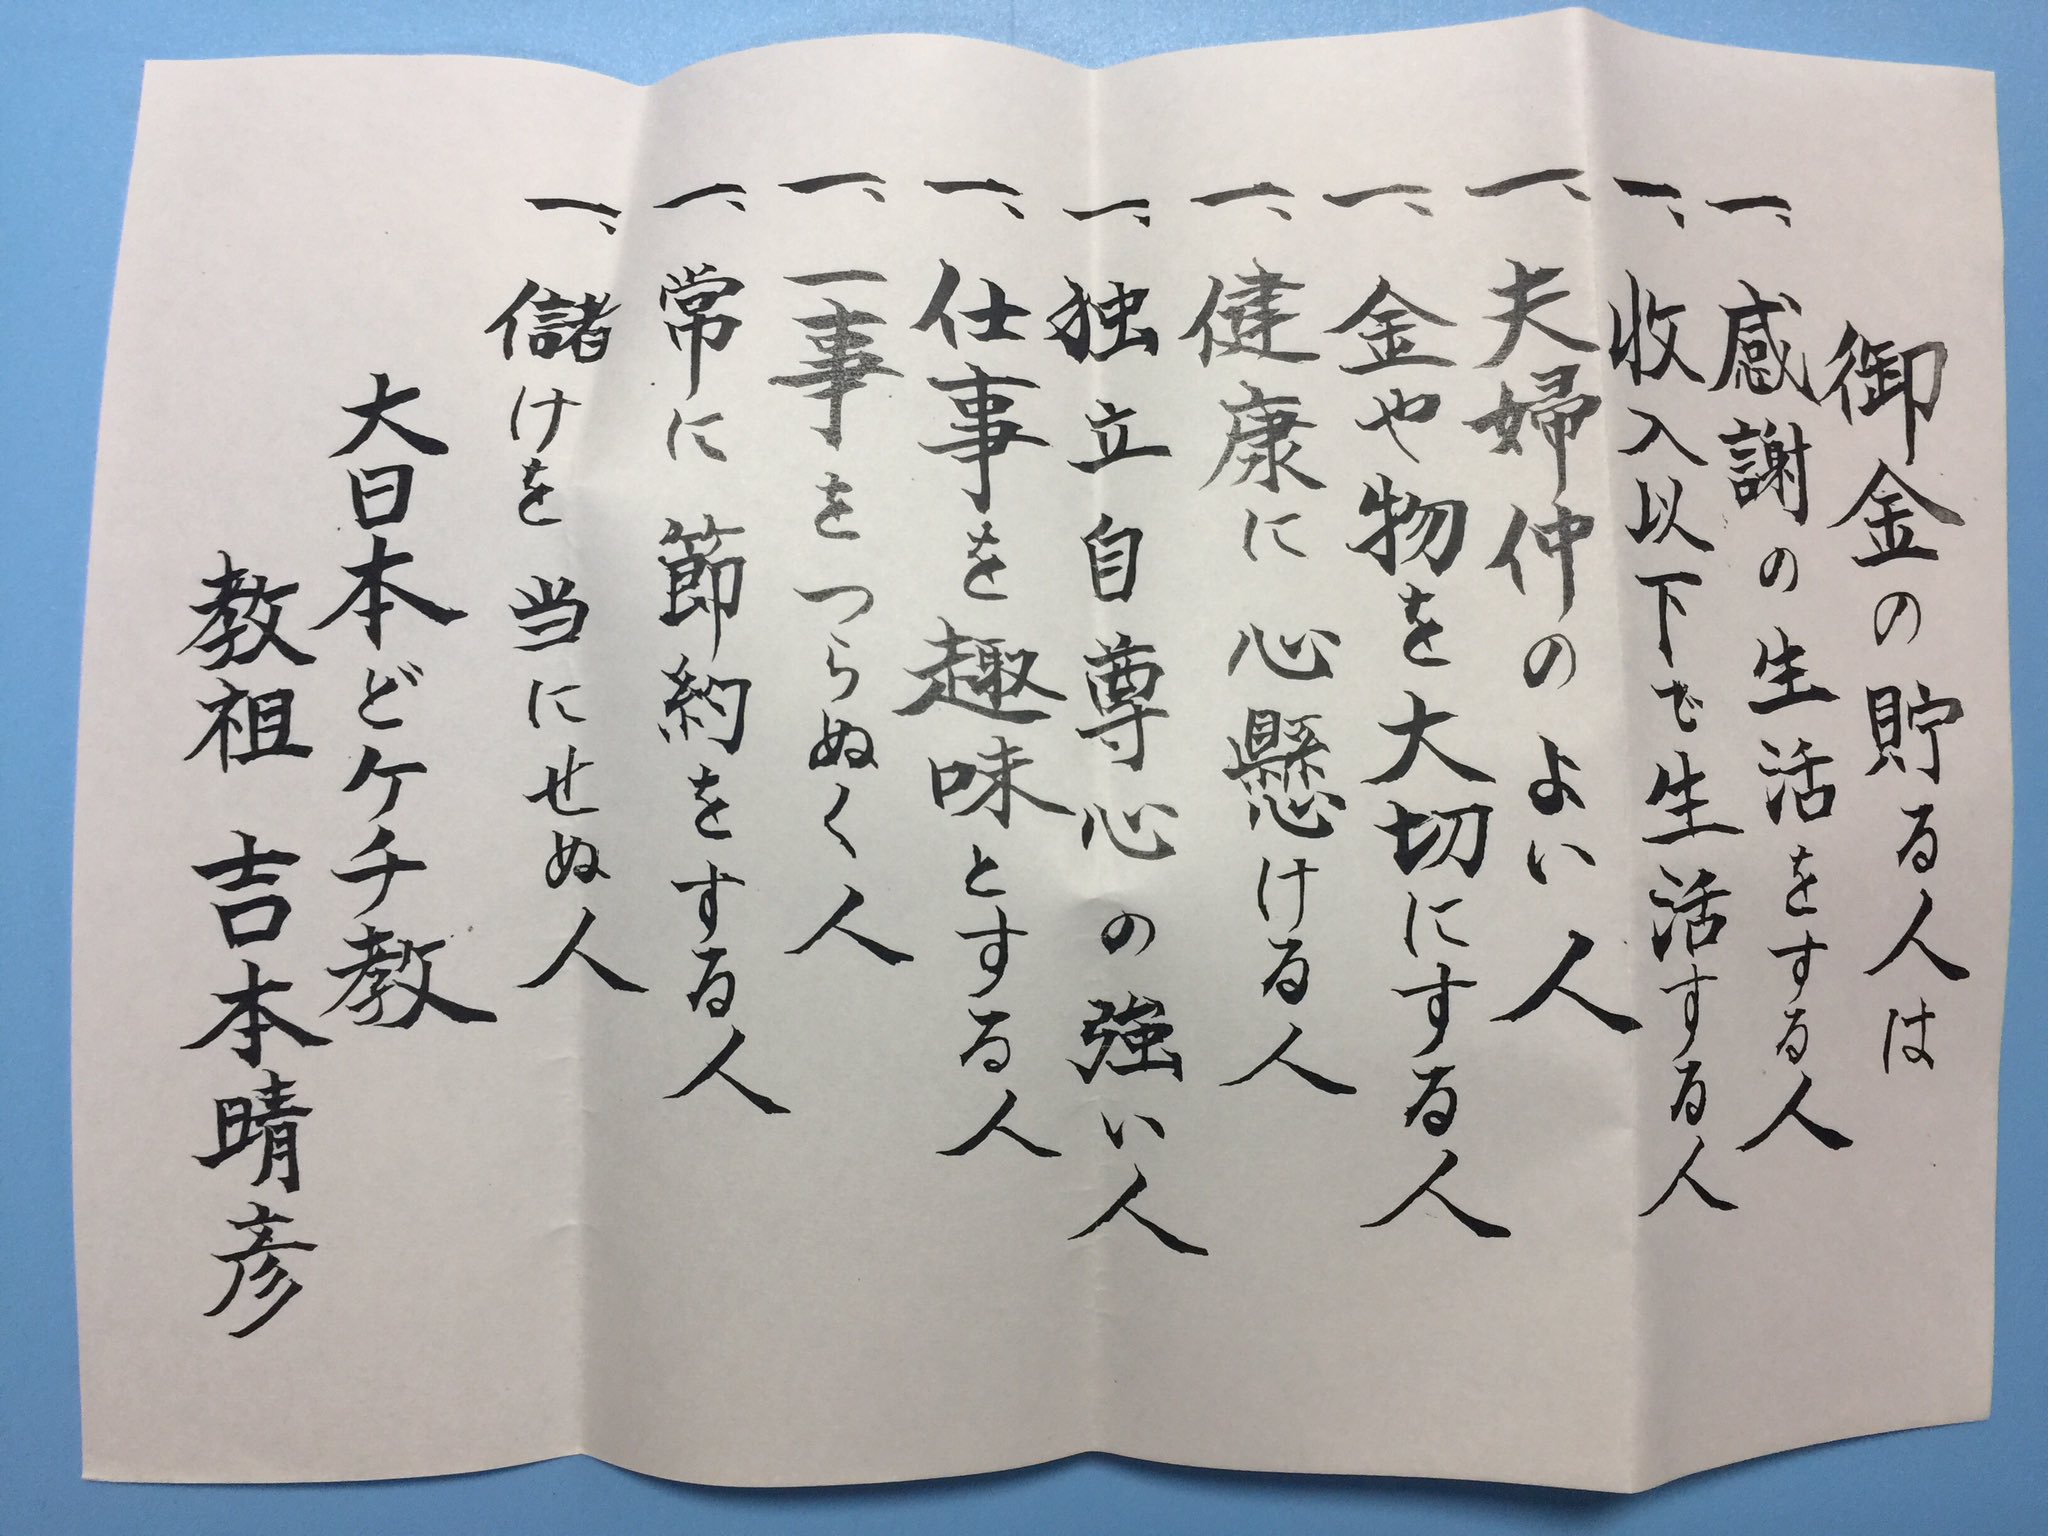 御金の貯る人は
一、感謝の生活をする人
一、収入以下で生活する人
一、夫婦仲のよい人
一、金や物を大切にする人
一、健康に心懸ける人
一、独立自尊心の強い人
一、仕事を趣味とする人
一、一事をつらぬく人
一、常に節約をする人
一、儲けを当にせぬ人
大日本どケチ教
教祖 吉本晴彦